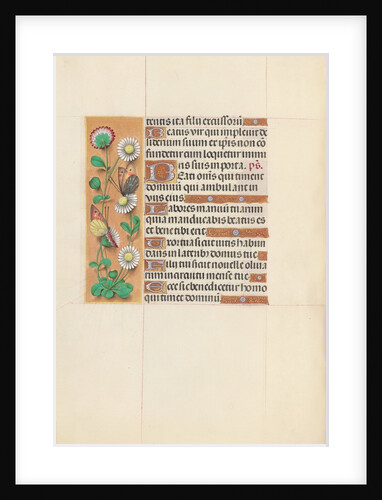 tentis ita filii excussorū
Beatus vir qui implevit de
siderium suum ex ipsis non cō
fundetur cum loquetur inimi
cis suis in porta. ps.
Beati oñs qui timent
dominū qui ambulant in
viis eius
Labores manuū tuarum
quia manducabis beatus es
et bene tibi erit
Uxor tua sicut vitis habun
dans in laterib9 domus tue
Filii tui sicut nouelle oliua
rum in circuitu mense tue
Ecce sic benedicetur homo
qui timet dominū